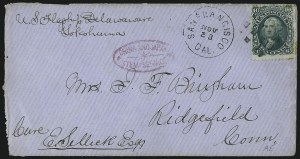 U.S. Flagship Delaware
Yokohama
SAN FRANCISCO
NOV
23
CAL.
Mrs. S. F. Bingham
Ridgefield
Conn.
Care
E. Sellick Esq